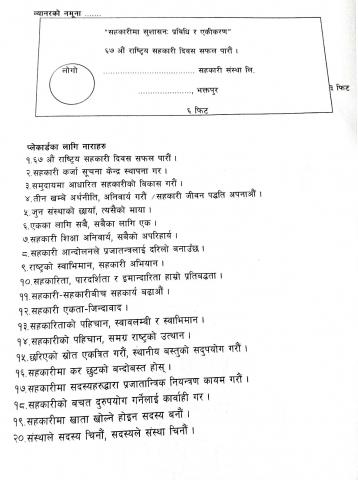 व्यानरको नमूना .......
"सहकारीमा सुशासनः प्रविधि र एकीकरण"
६७ औं राष्ट्रिय सहकारी दिवस सफल पारौं ।
लोगो
........................ सहकारी संस्था लि.
......................, भक्तपुर
३ फिट
६ फिट
प्लेकार्डका लागि नाराहरु
१.६७ औं राष्ट्रिय सहकारी दिवस सफल पारौं ।
२.सहकारी कर्जा सूचना केन्द्र स्थापना गर ।
३.समुदायमा आधारित सहकारीको विकास गरौं ।
४.तीन खम्बे अर्थनीति, अनिवार्य गरौं /सहकारी जीवन पद्धति अपनाऔं ।
५.जुन संस्थाको छायाँ, त्यसैको माया ।
६.एकका लागि सबै, सबैका लागि एक ।
७.सहकारी शिक्षा अनिवार्य, सबैको अपरिहार्य ।
८.सहकारी आन्दोलनले प्रजातन्त्रलाई दरिलो बनाउँछ ।
९.राष्ट्रको स्वाभिमान, सहकारी अभियान ।
१०.सहकारिता, पारदर्शिता र इमान्दारिता हाम्रो प्रतिबद्धता ।
११.सहकारी-सहकारीबीच सहकार्य बढाऔं ।
१२.सहकारी एकता-जिन्दावाद ।
१३.सहकारिताको पहिचान, स्वावलम्बी र स्वाभिमान ।
१४.सहकारीको पहिचान, समग्र राष्ट्रको उत्थान ।
१५.छरिएको स्रोत एकत्रित गरौं, स्थानीय बस्तुको सदुपयोग गरौं ।
१६.सहकारीमा कर छुटको बन्दोबस्त होस् ।
१७.सहकारीमा सदस्यहरुद्वारा प्रजातान्त्रिक नियन्त्रण कायम गरौं ।
१८.सहकारीको बचत दुरुपयोग गर्नेलाई कार्वाही गर ।
१९.सहकारीमा खाता खोल्ने होइन सदस्य बनौं ।
२०.संस्थाले सदस्य चिनौं, सदस्यले संस्था चिनौं ।